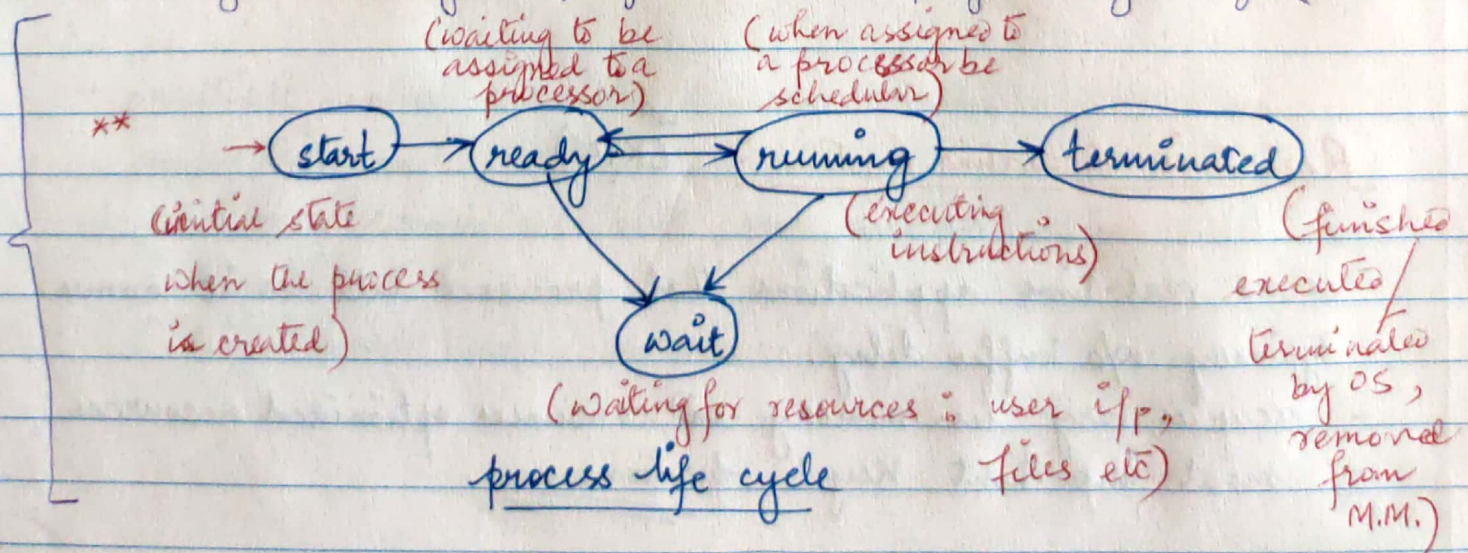 (waiting to be
assigned to a
processor)
(when assigned to
a processor be
schedular)
**
start
ready
running
terminated
(initial state
when the process
is created)
(executing
instructions)
(finished
executed /
terminated
by OS,
removed
from
M.M.)
wait
(waiting for resources : user i/p,
files etc)
process life cycle